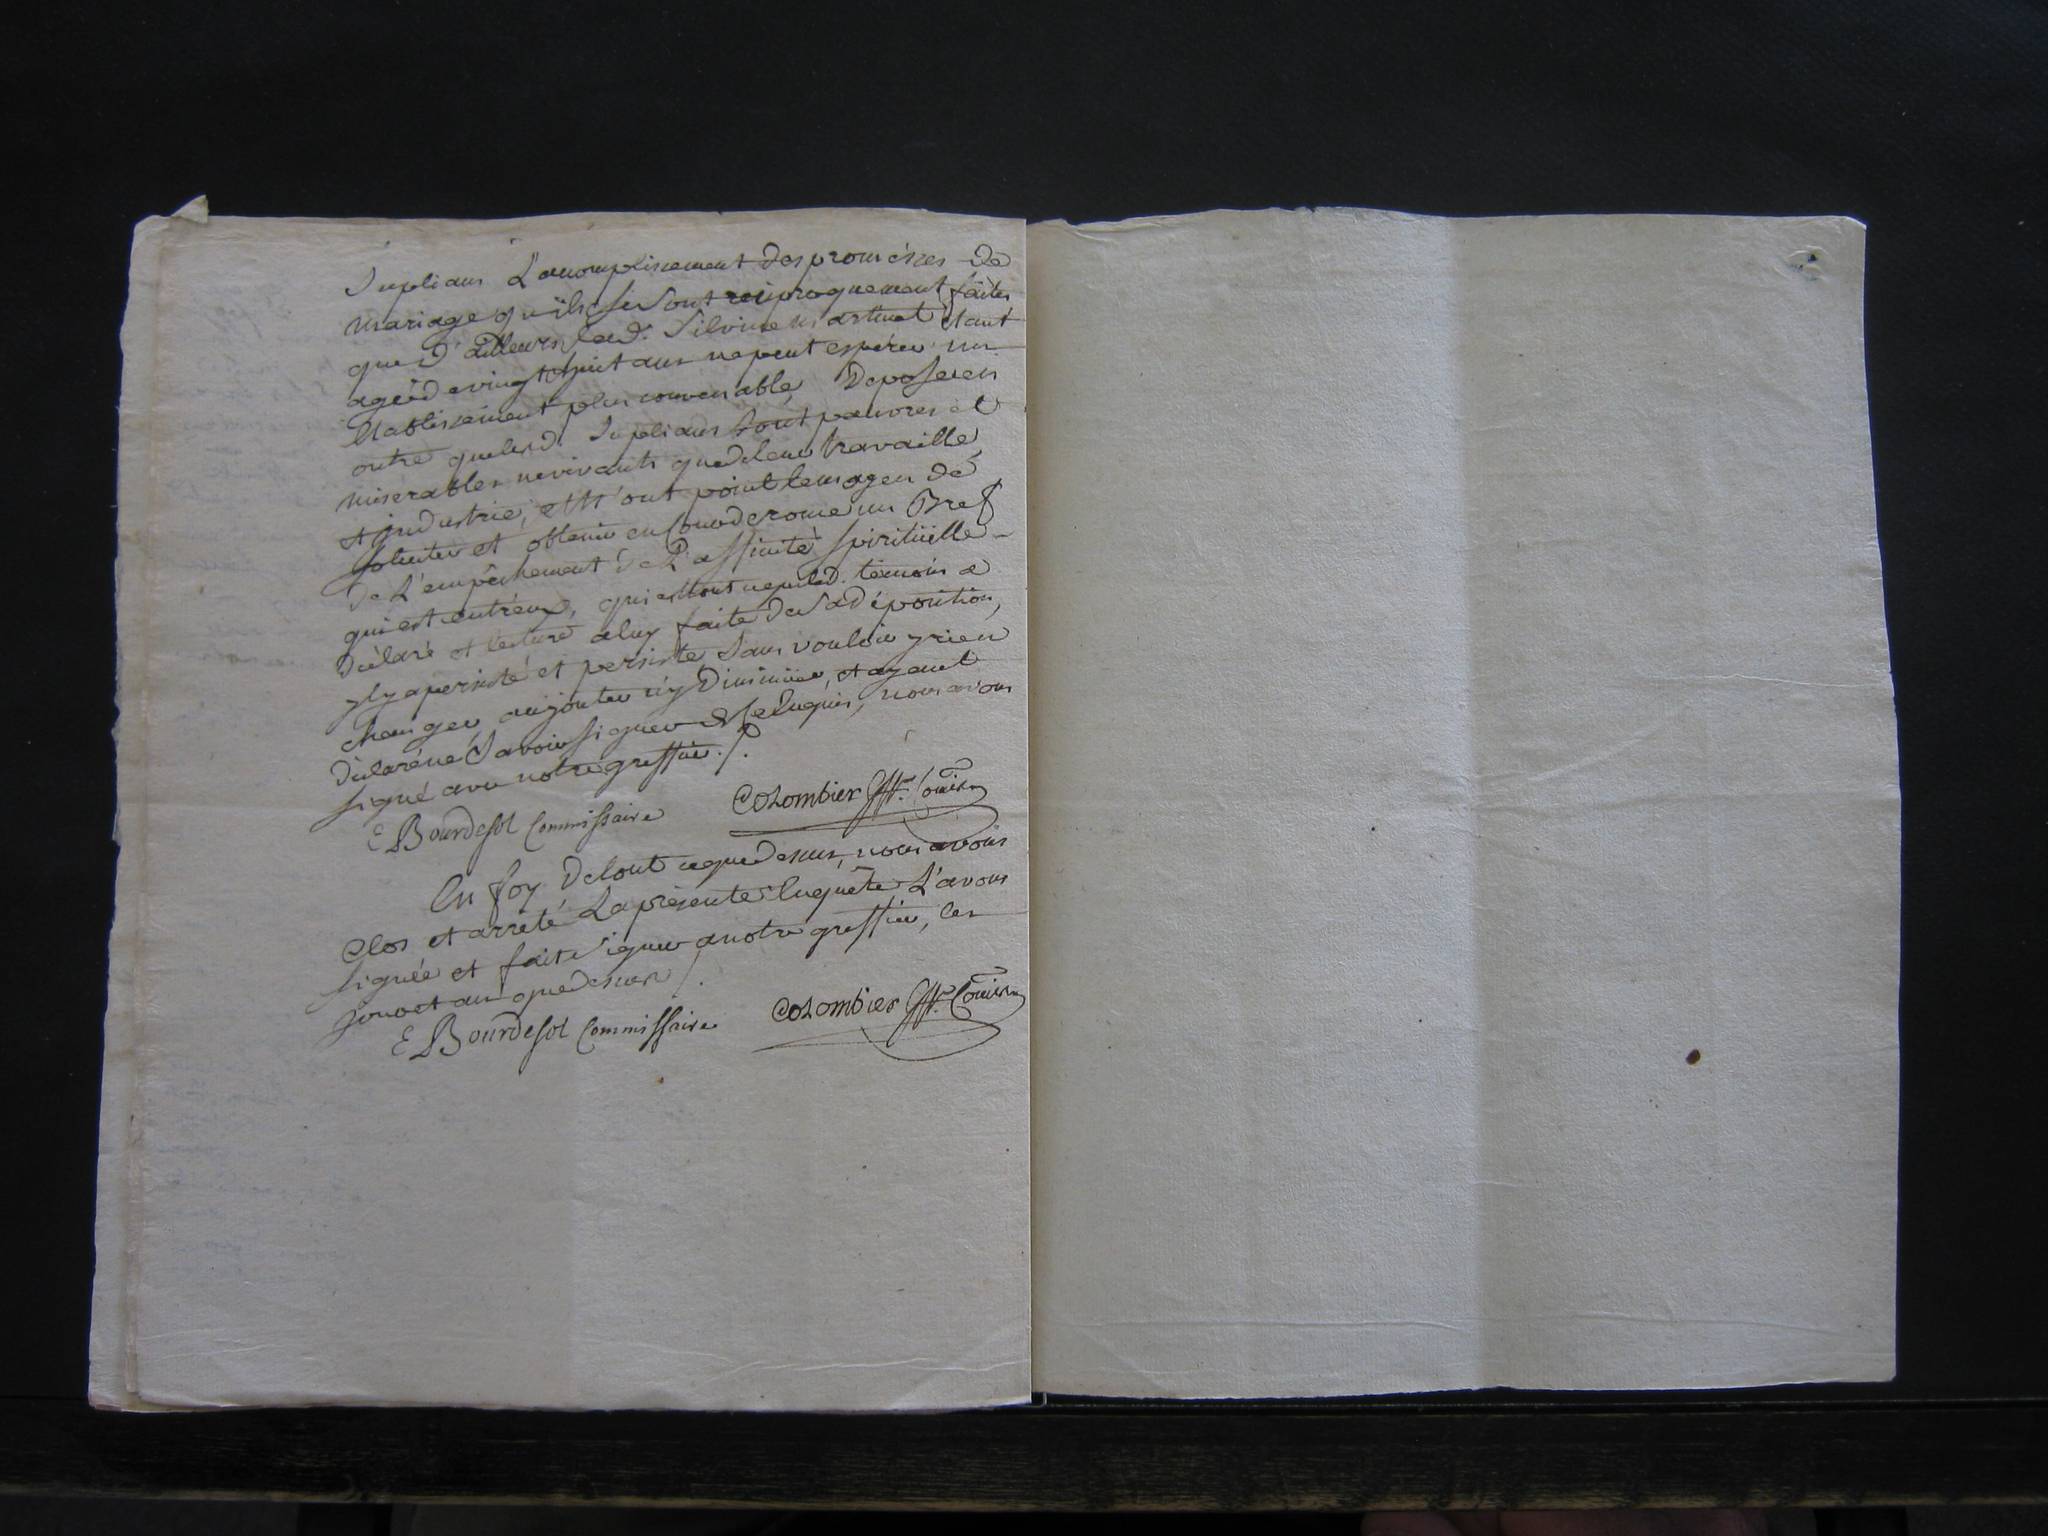 suplians L'acomplissement des proméses de
mariage qu'ils se sont reciproquement faites
que D'ailleurs lad. Silvine Martinet étant
agéé de vingt huit ans ne peut espérer un
Etablissement plus convenable, Depose en
outre que lesd. suplians sont pauvres et
miserables ne vivants que de leur travaille
et industrie, et n'ont point le moyen de
soliciter et obtenir en cour de rome un Bref
de L'empêchement de L'affinité spirituëlle
qui est entr'eux, qui est tout ce que led. témoin a
Déclaré et lecture a luy faite de sa déposition,
il y a persisté et persiste, sans vouloir y rien
changer aujouter n'y Diminüer, et ayant
déclaré ne savoir signer de ce Enquis, nous avons
signé avec notre greffier ./.
E Bourdesol Commissaire Colombier Gff. Comis
En foy De tout ce que dessus, nous avons
Clos et arrêté La présente Enquête L'avons
signéé et fait signer a notre greffier, les
jour et an que dessus ./.
E Bourdesol Commissaire Colombier Gff. Comis